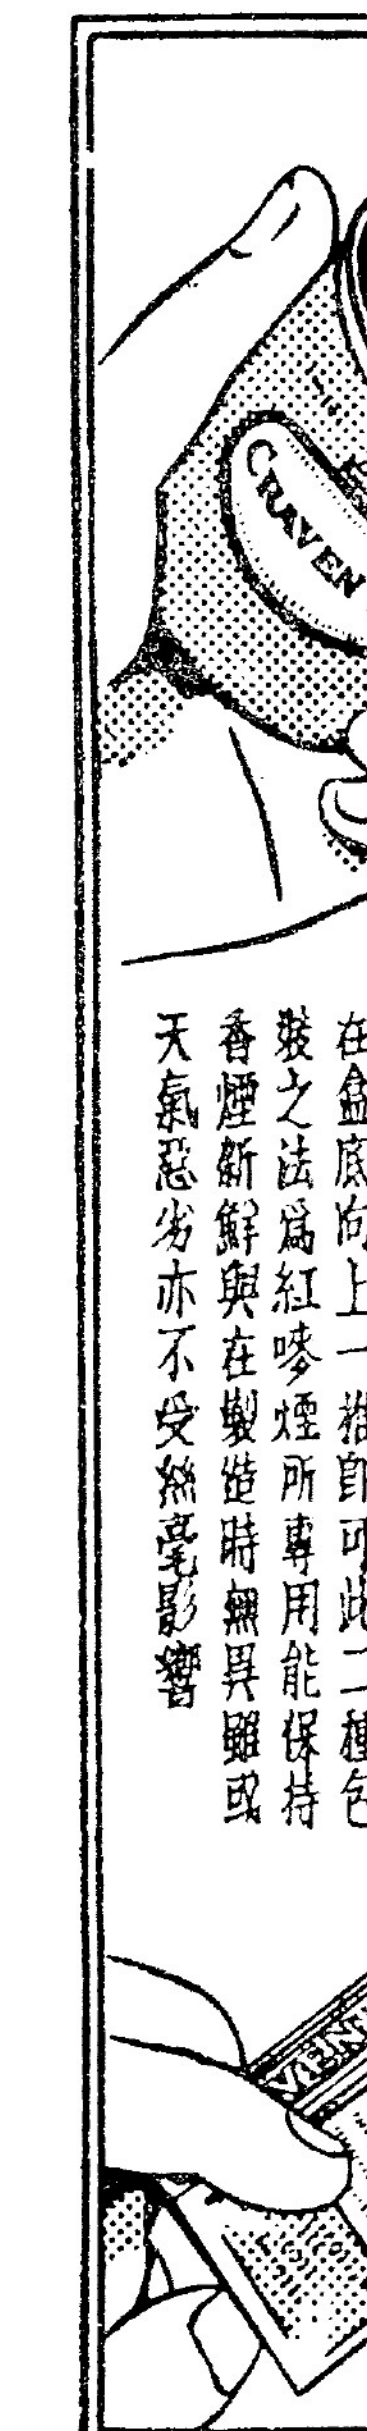 CRAVEN
在盒底向上一推即可此二種包
裝之法爲紅嘜煙所專用能保持
香煙新鮮與在製造時無異雖或
天氣惡劣亦不受絲毫影響
VENT